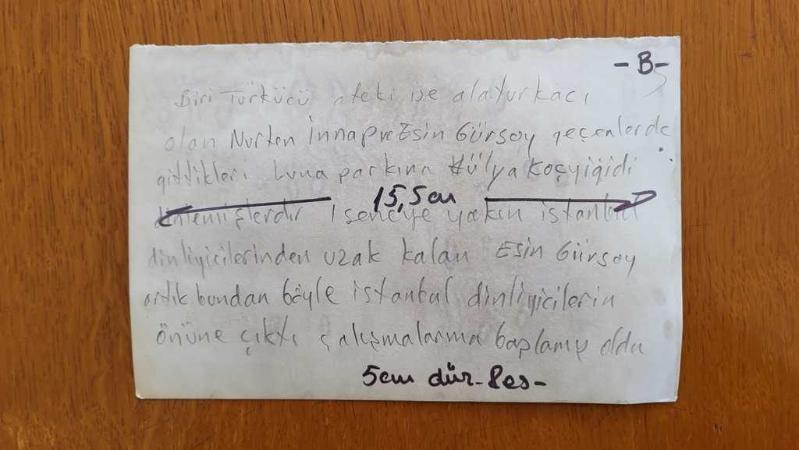 -B-
Biri Türkücü öteki ise alaturkacı
olan Nurten İnnap ve Esin Gürsoy geçenlerde
gittikleri Luna parkına Hülya Koçyiğidi
15,5 cm
dinlemişlerdir 1 seneye yakın istanbul
dinliyicilerinden uzak kalan Esin Gürsoy
artık bundan böyle istanbul dinliyicilerin
önüne çıktı çalışmalarına başlamış oldu
5cm dür-Res-